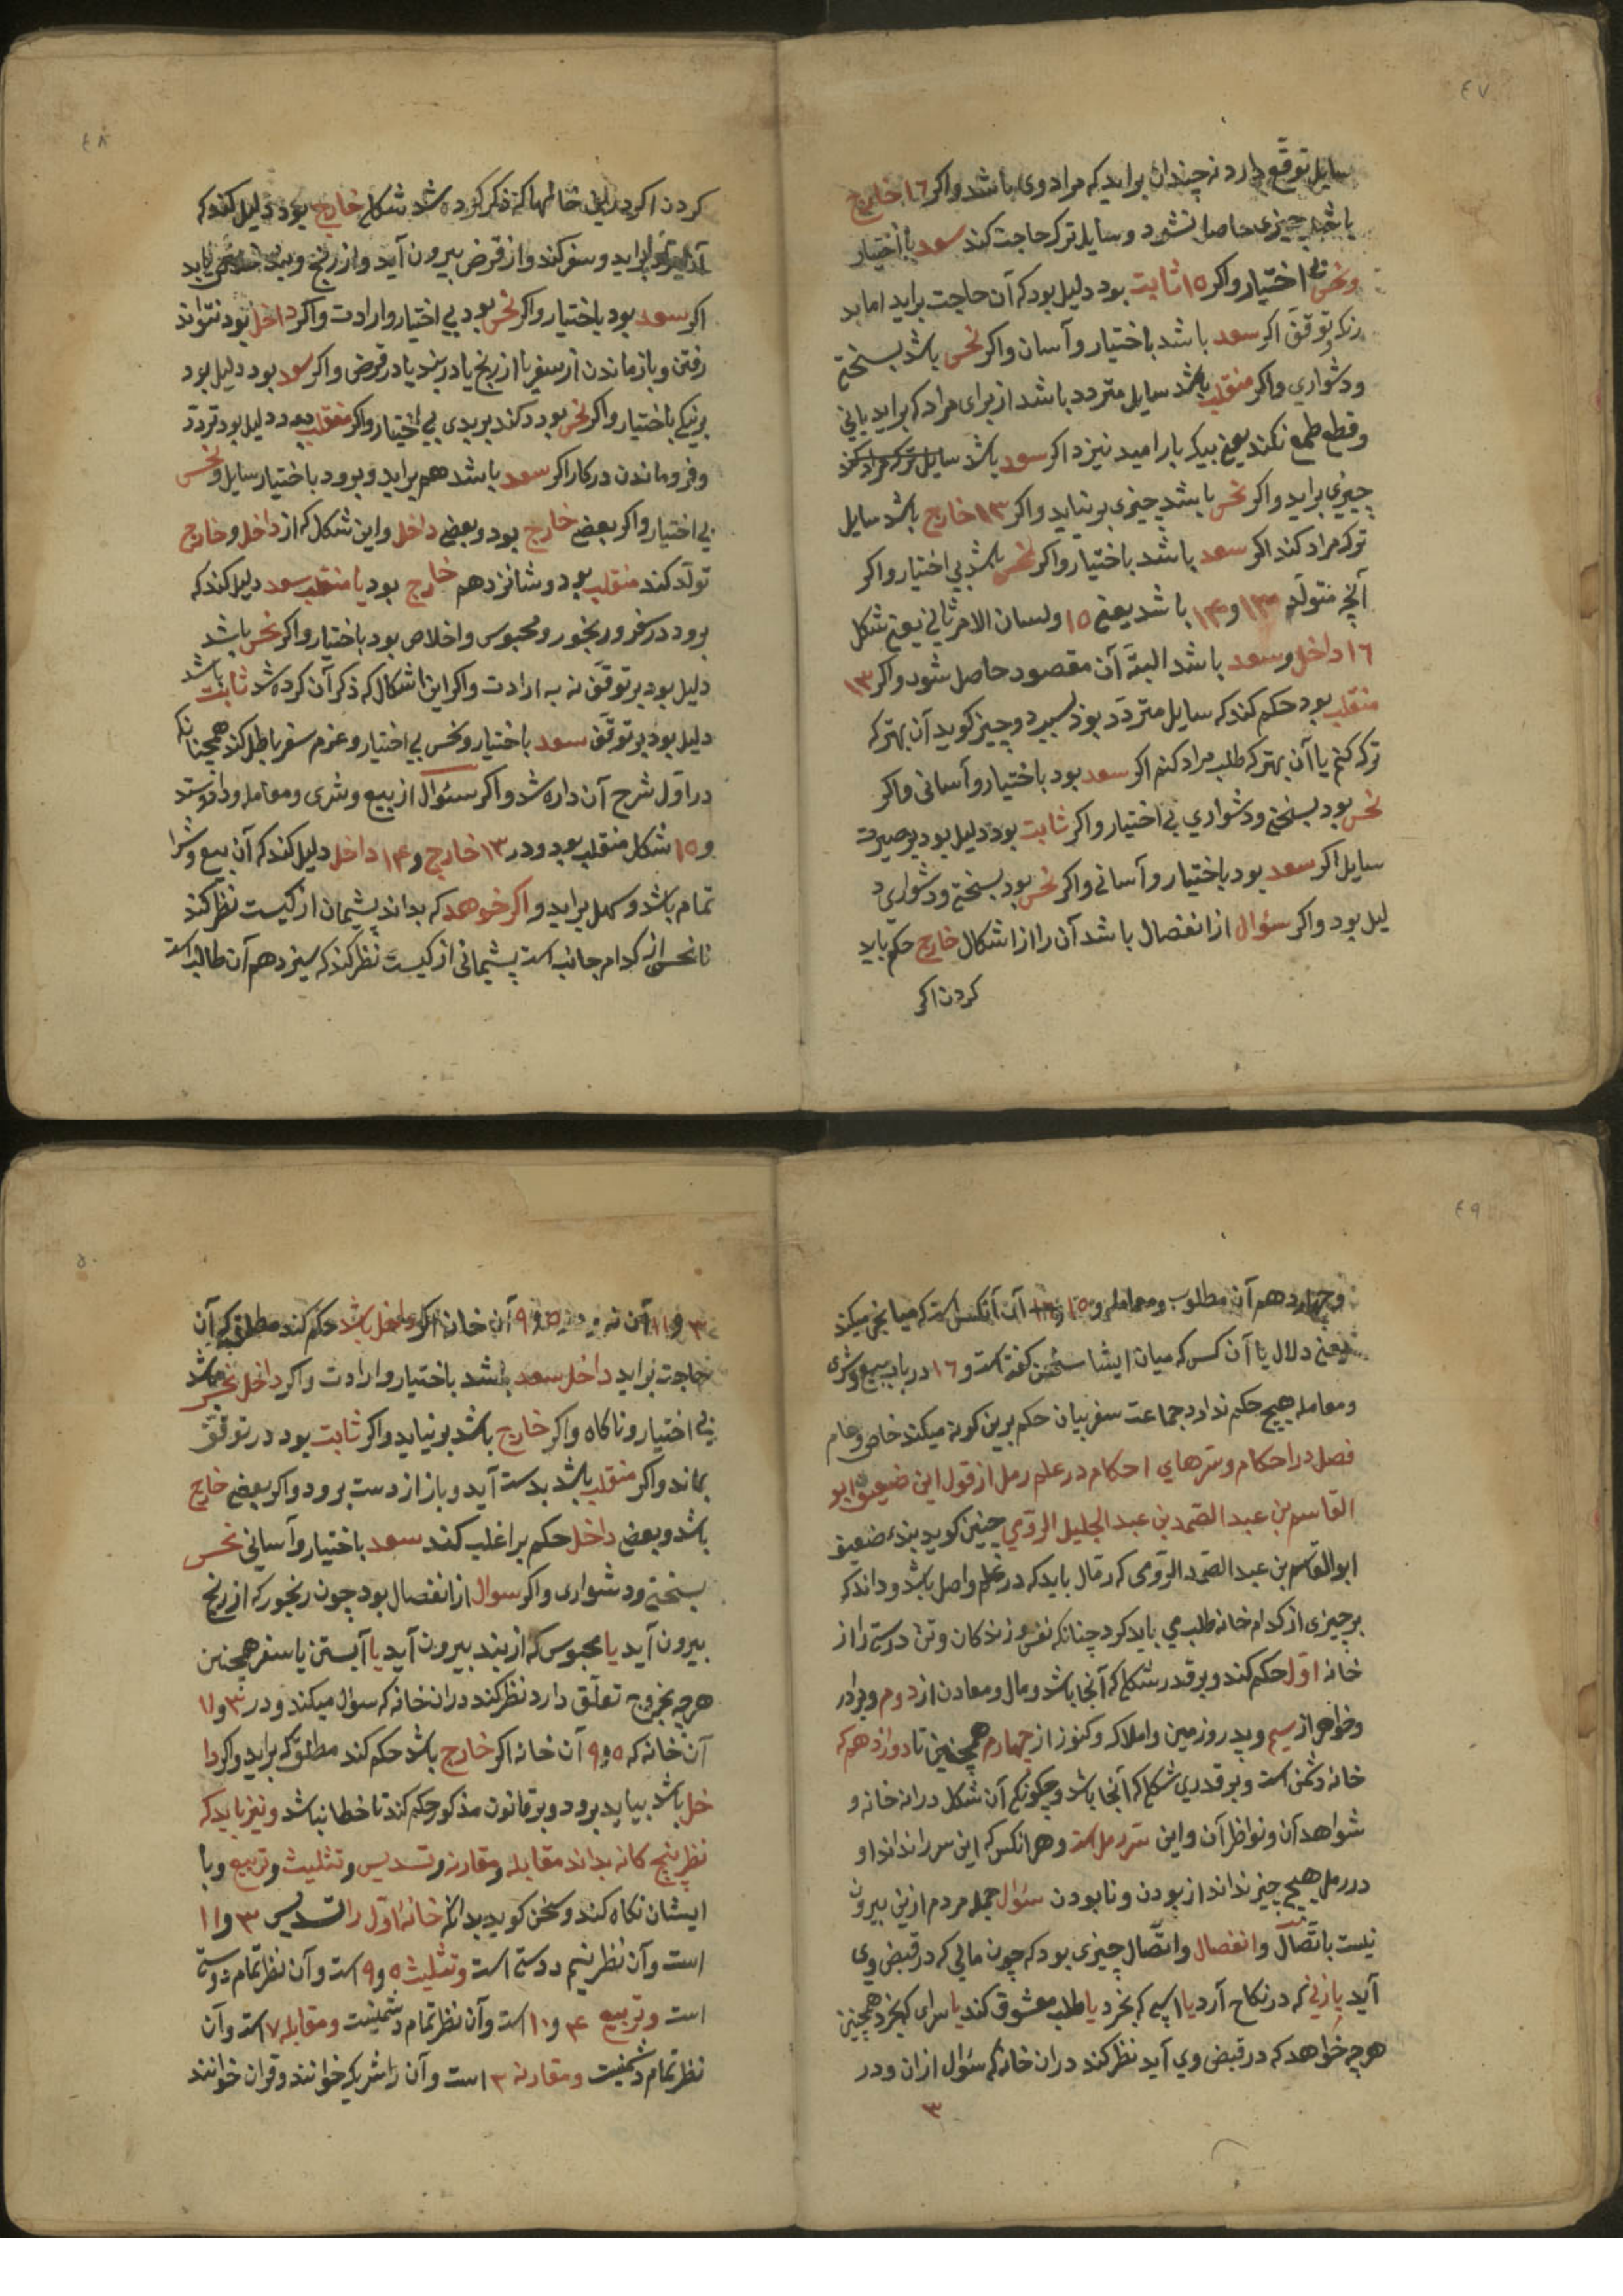 ٤٧
سایل توقع دارد نه چندان براید که مراد وی باشد واکر ١٦ خارج
باشد چیزی حاصل نشود وسایل ترک حاجت کند سعد باختیار
ونحس بی اختیار واکر ١٥ ثابت بود دلیل بود که آن حاجت براید اما بد
رنک وتوقف اکر سعد باشد باختیار وآسان واکر نحس باشد بسختی
ودشواری واکر منقلب باشد سایل متردد باشد از برای مراد که براید یانی
وقطع طمع نکند یعنی بیکبار امید نیزد اکر سعد باشد سایل ترک مراد کند
چیزی براید واکر نحس باشد چیزی برنیاید واکر ١٣ خارج باشد سایل
ترک مراد کند اکر سعد باشد باختیار واکر نحس باشد بی اختیار واکر
آنچه متولد ١٣ و ١۴ باشد یعنی ١٥ ولسان الامر ثانی یعنی شکل
١٦ داخل وسعد باشد البته آن مقصود حاصل شود واکر ١٣
منقلب بود حکم کند که سایل متردد بود بسبب دو چیز کوید آن بهتر که
ترک کنم یا آن بهتر که طلب مراد کنم اکر سعد بود باختیار وآسانی واکر
نحس بود بسختی ودشواری بی اختیار واکر ثابت بود دلیل بود بر صبرت
سایل اکر سعد بود باختیار وآسانی واکر نحس بود بسختی ودشواری د
لیل بود واکر سئوال از انفصال باشد آن را از اشکال خارج حکم باید
کردن اکر
٤٨
کردن اکر در این خانها که ذکر کرده شد شکل خارج بود دلیل کند که
براید وسفر کند واز قرض بیرون آید واز رنج وبند خلاص یابد
اکر سعد بود باختیار واکر نحس بود بی اختیار وارادت واکر داخل بود نتواند
رفتن وباز ماندن از سفر یا از رنج یا در بند یا در قرض واکر سعد بود دلیل بود
برنیکی باختیار واکر نحس بود دکند بر بدی بی اختیار واکر منقلب بود دلیل بود تردد
وفرو ماندن در کار اکر سعد باشد هم براید وبرود باختیار سایل ونحس
بی اختیار واکر بعضی خارج بود وبعضی داخل واین شکل که از داخل وخارج
تولد کند منقلب بود وشانزدهم خارج بود یا منقلب سعد دلیل کند که
برود در سفر ورنجور ومحبوس واخلاص بود باختیار واکر نحس باشد
دلیل بود بر توقف نه به ارادت واکر این اشکال که ذکر آن کرده شد ثابت باشد
دلیل بود بر توقف سعد باختیار ونحس بی اختیار وعزم سفر باطل کند همچنانکه
در اول شرح آن داده شد واکر سئوال از بیع وشری ومعامله وداد وستد
و ١٥ شکل منقلب بود ودر ١٣ خارج و ١۴ داخل دلیل کند که آن بیع وشرا
تمام باشد وسهل براید واکر خوهد که بداند پشیمان از کیست نظر کند
تا نحس از کدام جانب است پشیمانی از کیست نظر کند که سیزدهم آن طالب است
٤٩
وچهاردهم آن مطلوب ومعامله و ١٥ آن آنکس است که میانجی میکند
یعنی دلال یا آن کس که میان ایشا سخن کفته است و ١٦ در باب بیع وشری
ومعامله هیچ حکم ندارد جماعت سفر بیان حکم برین کونه میکند خاص وعام
فصل در احکام وسرهای احکام در علم رمل از قول این ضعیف ابو
القاسم بن عبد الصمد بن عبد الجلیل الرومی چنین کوید بنده ضعیف
ابو القاسم بن عبد الصمد الرومی که رمال باید که در علم واصل باشد وداند که
بر چیزی از کدام خانه طلب می باید کرد چنانکه نفس وزندکان وتن درستی را از
خانه اول حکم کند وبر قدر شکل که آنجا باشد ومال ومعادن از دوم وبرادر
وخواهر از سیم وپدر وزمین واملاک وکنوز از چهارم همچنین تا دوازدهم که
خانه دشمن است وبر قدری شکل که آنجا باشد وچکونکی آن شکل در انه خانه و
شواهد آن ونواظر آن واین سر رمل است وهر انکس که این سر را نداند او
در رمل هیچ چیز نداند از بودن ونا بودن سئوال جمله مردم ازین بیرون
نیست باتصال وانفصال واتصال چیزی بود که چون مالی که در قبض وی
آید یا زنی که در نکاح آرد یا اسپی که بخرد یا طلب معشوق کند یا سرای که بخرد همچنین
هرچه خواهد که در قبض وی آید نظر کند دران خانه که سئوال ازان ودر
٣
٥٠
٣ و ١١ آن نه و ٥ و ٩ آن خانه اکر داخل باشد حکم کند مطلق که آن
حاجت براید داخل سعد باشد باختیار وارادت واکر داخل نحس باشد
بی اختیار وناکاه واکر خارج باشد برنیاید واکر ثابت بود در توقف
بماند واکر منقلب باشد بدست آید وباز از دست برود واکر بعضی خارج
باشد وبعضی داخل حکم بر اغلب کند سعد باختیار وآسانی نحس
بسختی ودشواری واکر سوال از انفصال بود چون رنجور که از رنج
بیرون آید یا محبوس که از بند بیرون آید یا آبستن یا سفر همچنین
هرچه بخروج تعلق دارد نظر کند دران خانه که سؤال میکند ودر ٣ و ١١
آن خانه که ٥ و ٩ آن خانه اکر خارج باشد حکم کند مطلق که براید واکر دا
خل باشد بیاید برود وبر قانون مذکور حکم کند تا خطا نباشد ونیز باید که
نظر پنج کانه بداند مقابله ومقارنه وتسدیس وتثلیث وتربیع وبا
ایشان نکاه کند وسخن کوید بدانکه خانه اول را تسدیس ٣ و ١١
است وآن نظر نیم دوستی است وتثلیث ٥ و ٩ است وآن نظر تمام دوستی
است وتربیع ۴ و ١٠ است وآن نظر تمام دشمنیست ومقابله ٧ است وآن
نظر تمام دشمنیست ومقارنه ٣ است وآن را شریک خوانند وقران خوانند